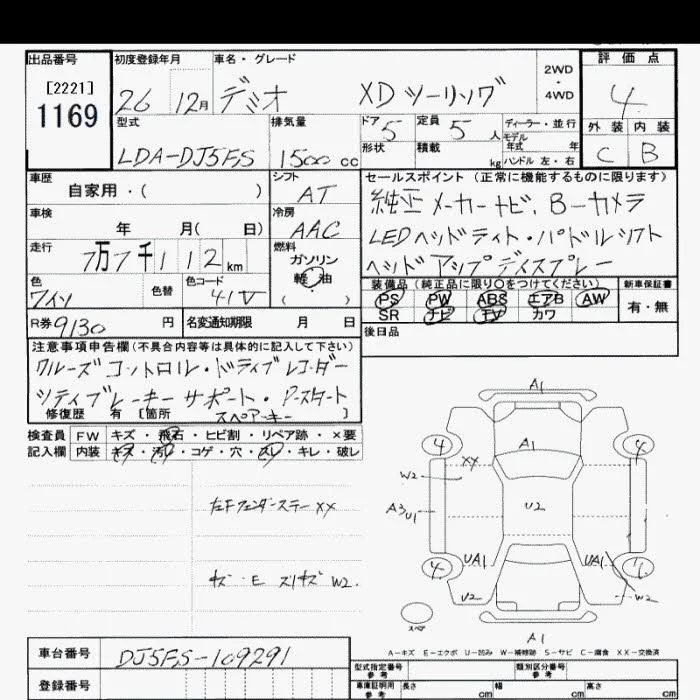 出品番号 初度登録年月 車名・グレード 2WD・4WD 評価点
[2221]
1169 26 12月 デミオ XD ツーリング 4
型式 排気量 ドア 定員 ディーラー・並行 外装 内装
5 5人 モデル年式 年
LDA-DJ5FS 1500cc 形状 積載 kg ハンドル 左・右 C B
車歴 シフト セールスポイント (正常に機能するものに限ります)
自家用・( ) AT 純正メーカーナビ、Bーカメラ
車検 冷房
年 月( 日) AAC LEDヘッドライト・パドルシフト
走行 燃料
7万7千112km ガソリン ヘッドアップディスプレー
軽油
色 色替 色コード ( ・ ) 装備品(純正品に限り○をつけてください) 新車保証書
ワイン 41V PS PW ABS エアB AW 有・無
R券 9130円 名変通知期限 月 日 SR ナビ TV カワ
後日品
注意事項申告欄(不具合内容等は具体的に記入して下さい)
クルーズコントロール・ドライブレコーダー
シティブレーキサポート・Pースタート
修復歴 有 [箇所 スペアーキー ]
検査員 FW キズ・飛石・ヒビ割・リペア跡・×要
記入欄 内装 キズ・汚レ・コゲ・穴・スレ・キレ・破レ
A1
4 A1 4
W2 XX
左Fフェンダーステー XX A3 U1 U2
UA1 UA1
キズ・E スリキズ W2 4 U2 W2
スペア A1
A-キズ E-エクボ U-凹み W-補修跡 S-サビ C-腐食 XX-交換済
車台番号 DJ5FS-109291 型式指定番号 参考 類別区分番号 参考
登録番号 車庫証明用 参考 長さ cm 幅 cm 高さ cm